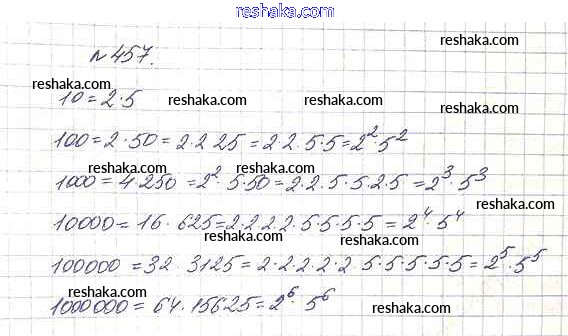 reshaka.com
№457.
reshaka.com
reshaka.com
10 = 2·5
reshaka.com
reshaka.com
100 = 2·50 = 2·2 25 = 2·2·5·5 = 2²·5²
reshaka.com
reshaka.com
1000 = 4·250 = 2²·5·50 = 2·2·5·5·2·5 = 2³·5³
reshaka.com
10000 = 16·625 = 2·2·2·2·5·5·5·5 = 2⁴·5⁴
reshaka.com
reshaka.com
100000 = 32·3125 = 2·2·2·2·2·5·5·5·5·5 = 2⁵·5⁵
reshaka.com
1000000 = 64·15625 = 2⁶·5⁶
reshaka.com